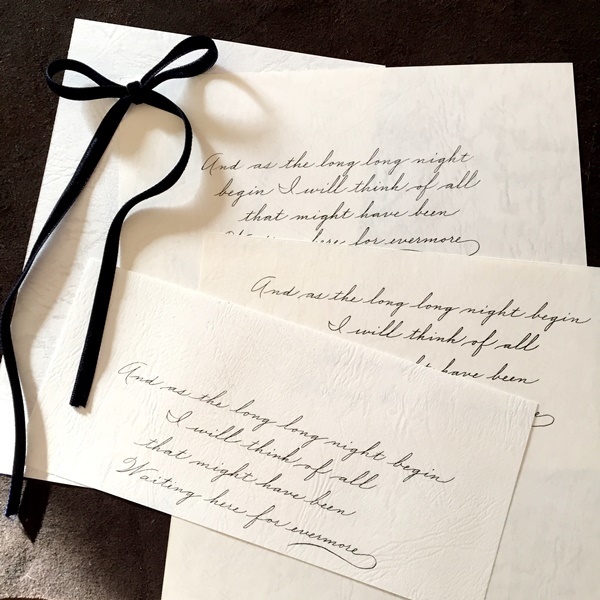 And as the long long night
begin I will think of all
that might have been
here for evermore
And as the long long night begin
I will think of all
have been
And as the long long night begin
I will think of all
that might have been
Waiting here for evermore